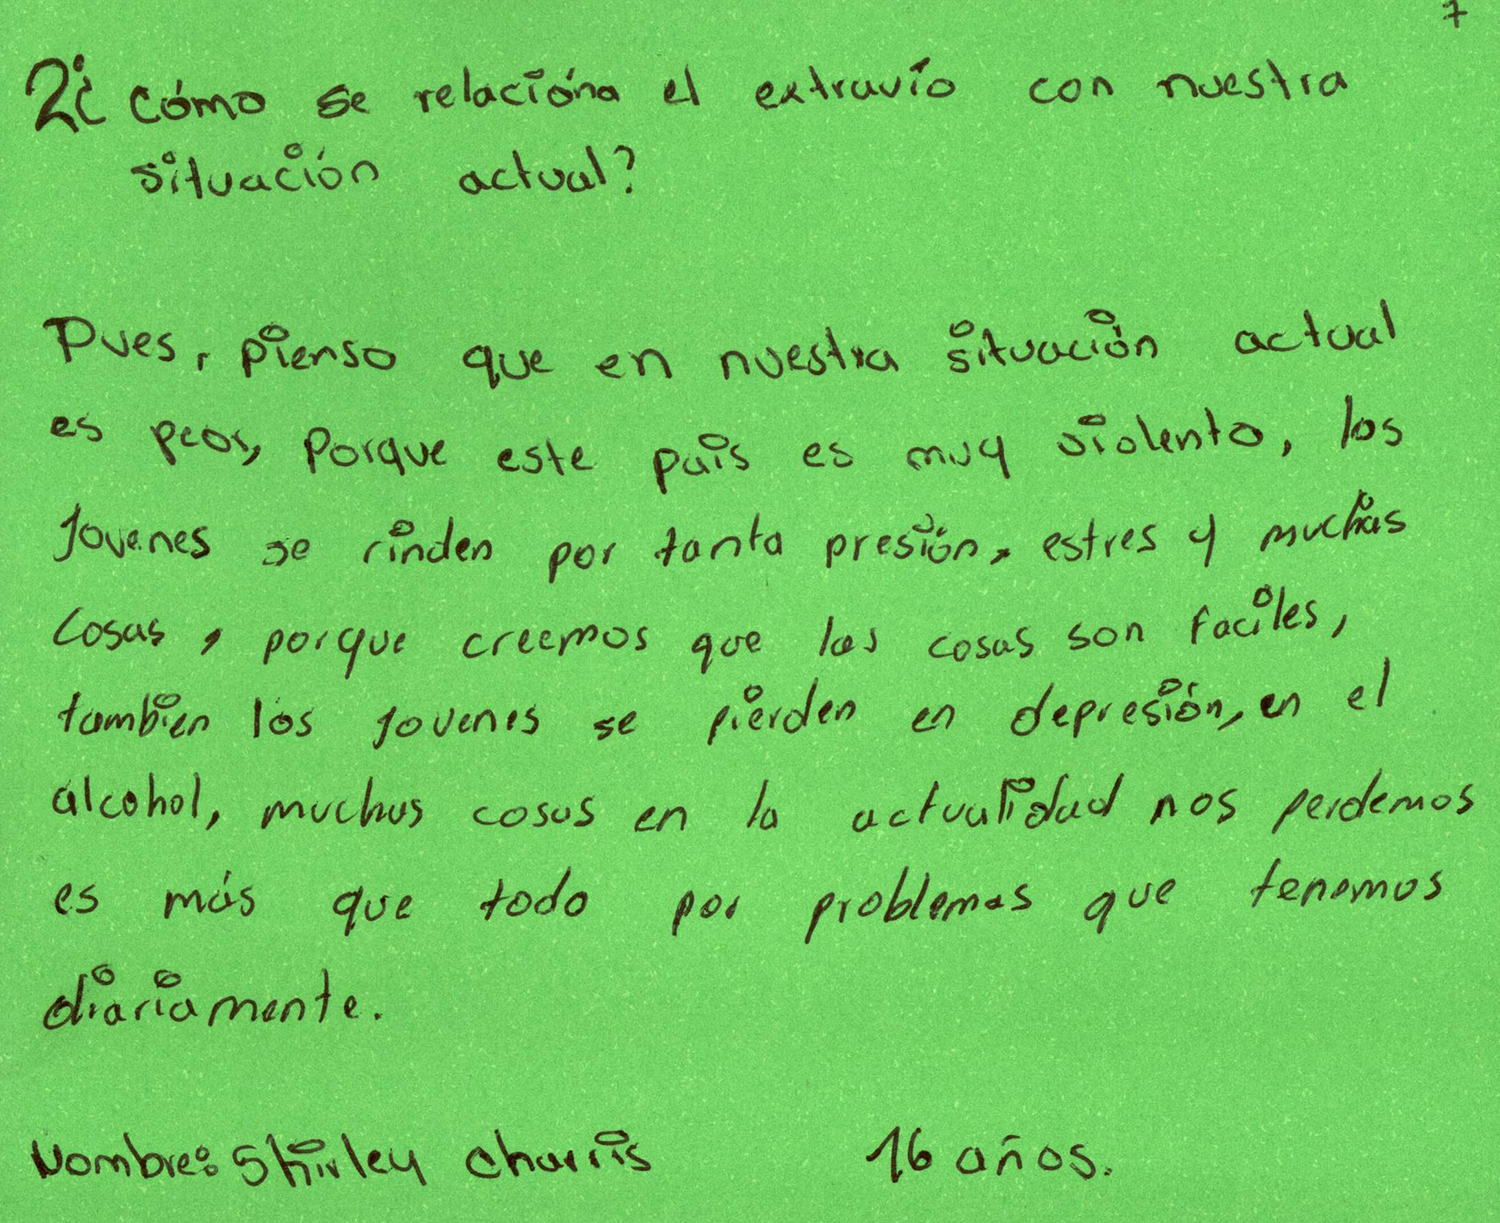 7
2¿ Cómo se relacióna el extravío con nuestra
situación actual?
Pues, pienso que en nuestra situación actual
es peor, porque este país es muy violento, los
Jovenes se rinden por tanta presión, estres y muchas
cosas, porque creemos que las cosas son faciles,
tambien los jovenes se pierden en depresión, en el
alcohol, muchas cosas en la actualidad nos perdemos
es más que todo por problemas que tenemos
diariamente.
Nombre: Shirley Charris 16 años.